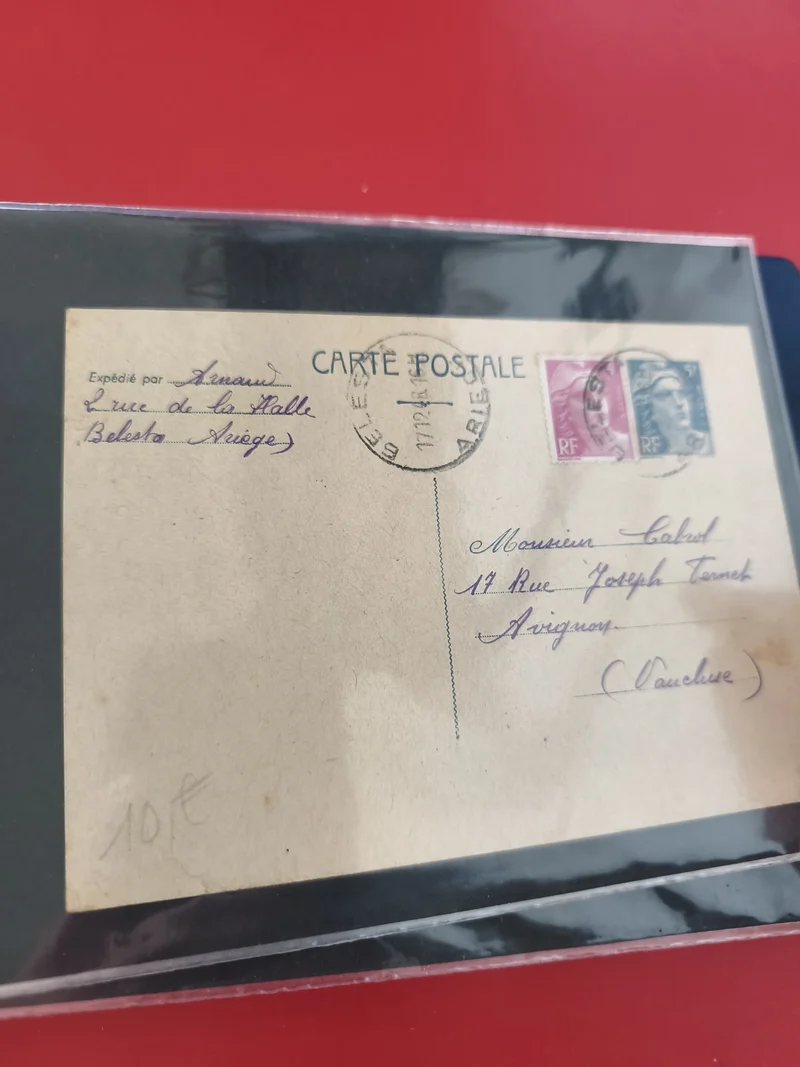 CARTE POSTALE
Expédié par Arnaud
2 rue de la Halle
Belesta Ariège)
BELESTA
17 12 48
ARIEGE
RF
5F
RF
Monsieur Cabrol
17 Rue Joseph Vernet
Avignon
(Vaucluse)
10 €